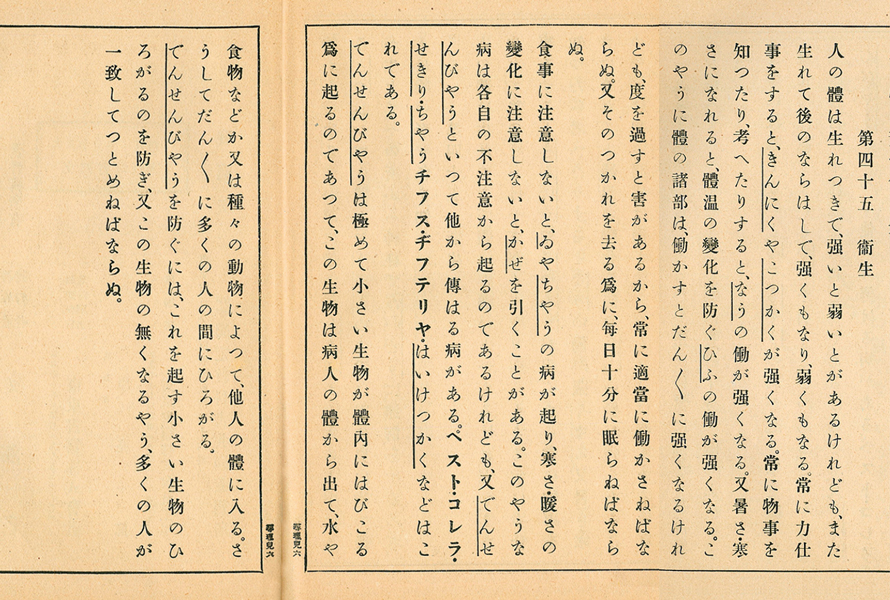 第四十五　衞生
人の體は生れつきで、强いと弱いとがあるけれども、また
生れて後のならはしで、强くもなり、弱くもなる。常に力仕
事をすると、きんにくやこつかくが强くなる。常に物事を
知つたり、考へたりすると、なうの働が强くなる。又暑さ寒
さになれると、體温の變化を防ぐひふの働が强くなる。こ
のやうに體の諸部は、働かすとだん〳〵に强くなるけれ
ども、度を過すと害があるから、常に適當に働かさねばな
らぬ。又そのつかれを去る爲に、每日十分に眠らねばなら
ぬ。
食事に注意しないと、ゐやちやうの病が起り、寒さ・暖さの
變化に注意しないと、かぜを引くことがある。このやうな
病は各自の不注意から起るのであるけれども、又でんせ
んびやうといつて他から傳はる病がある。ペスト・コレラ・
せきり・ちやうチフス・ヂフテリヤ・はいけつかくなどはこ
れである。
でんせんびやうは極めて小さい生物が體內にはびこる
爲に起るのであつて、この生物は病人の體から出て、水や
尋理兒六
尋理兒六
食物などか又は種々の動物によつて、他人の體に入る。さ
うしてだん〳〵に多くの人の間にひろがる。
でんせんびやうを防ぐには、これを起す小さい生物のひ
ろがるのを防ぎ、又この生物の無くなるやう、多くの人が
一致してつとめねばならぬ。